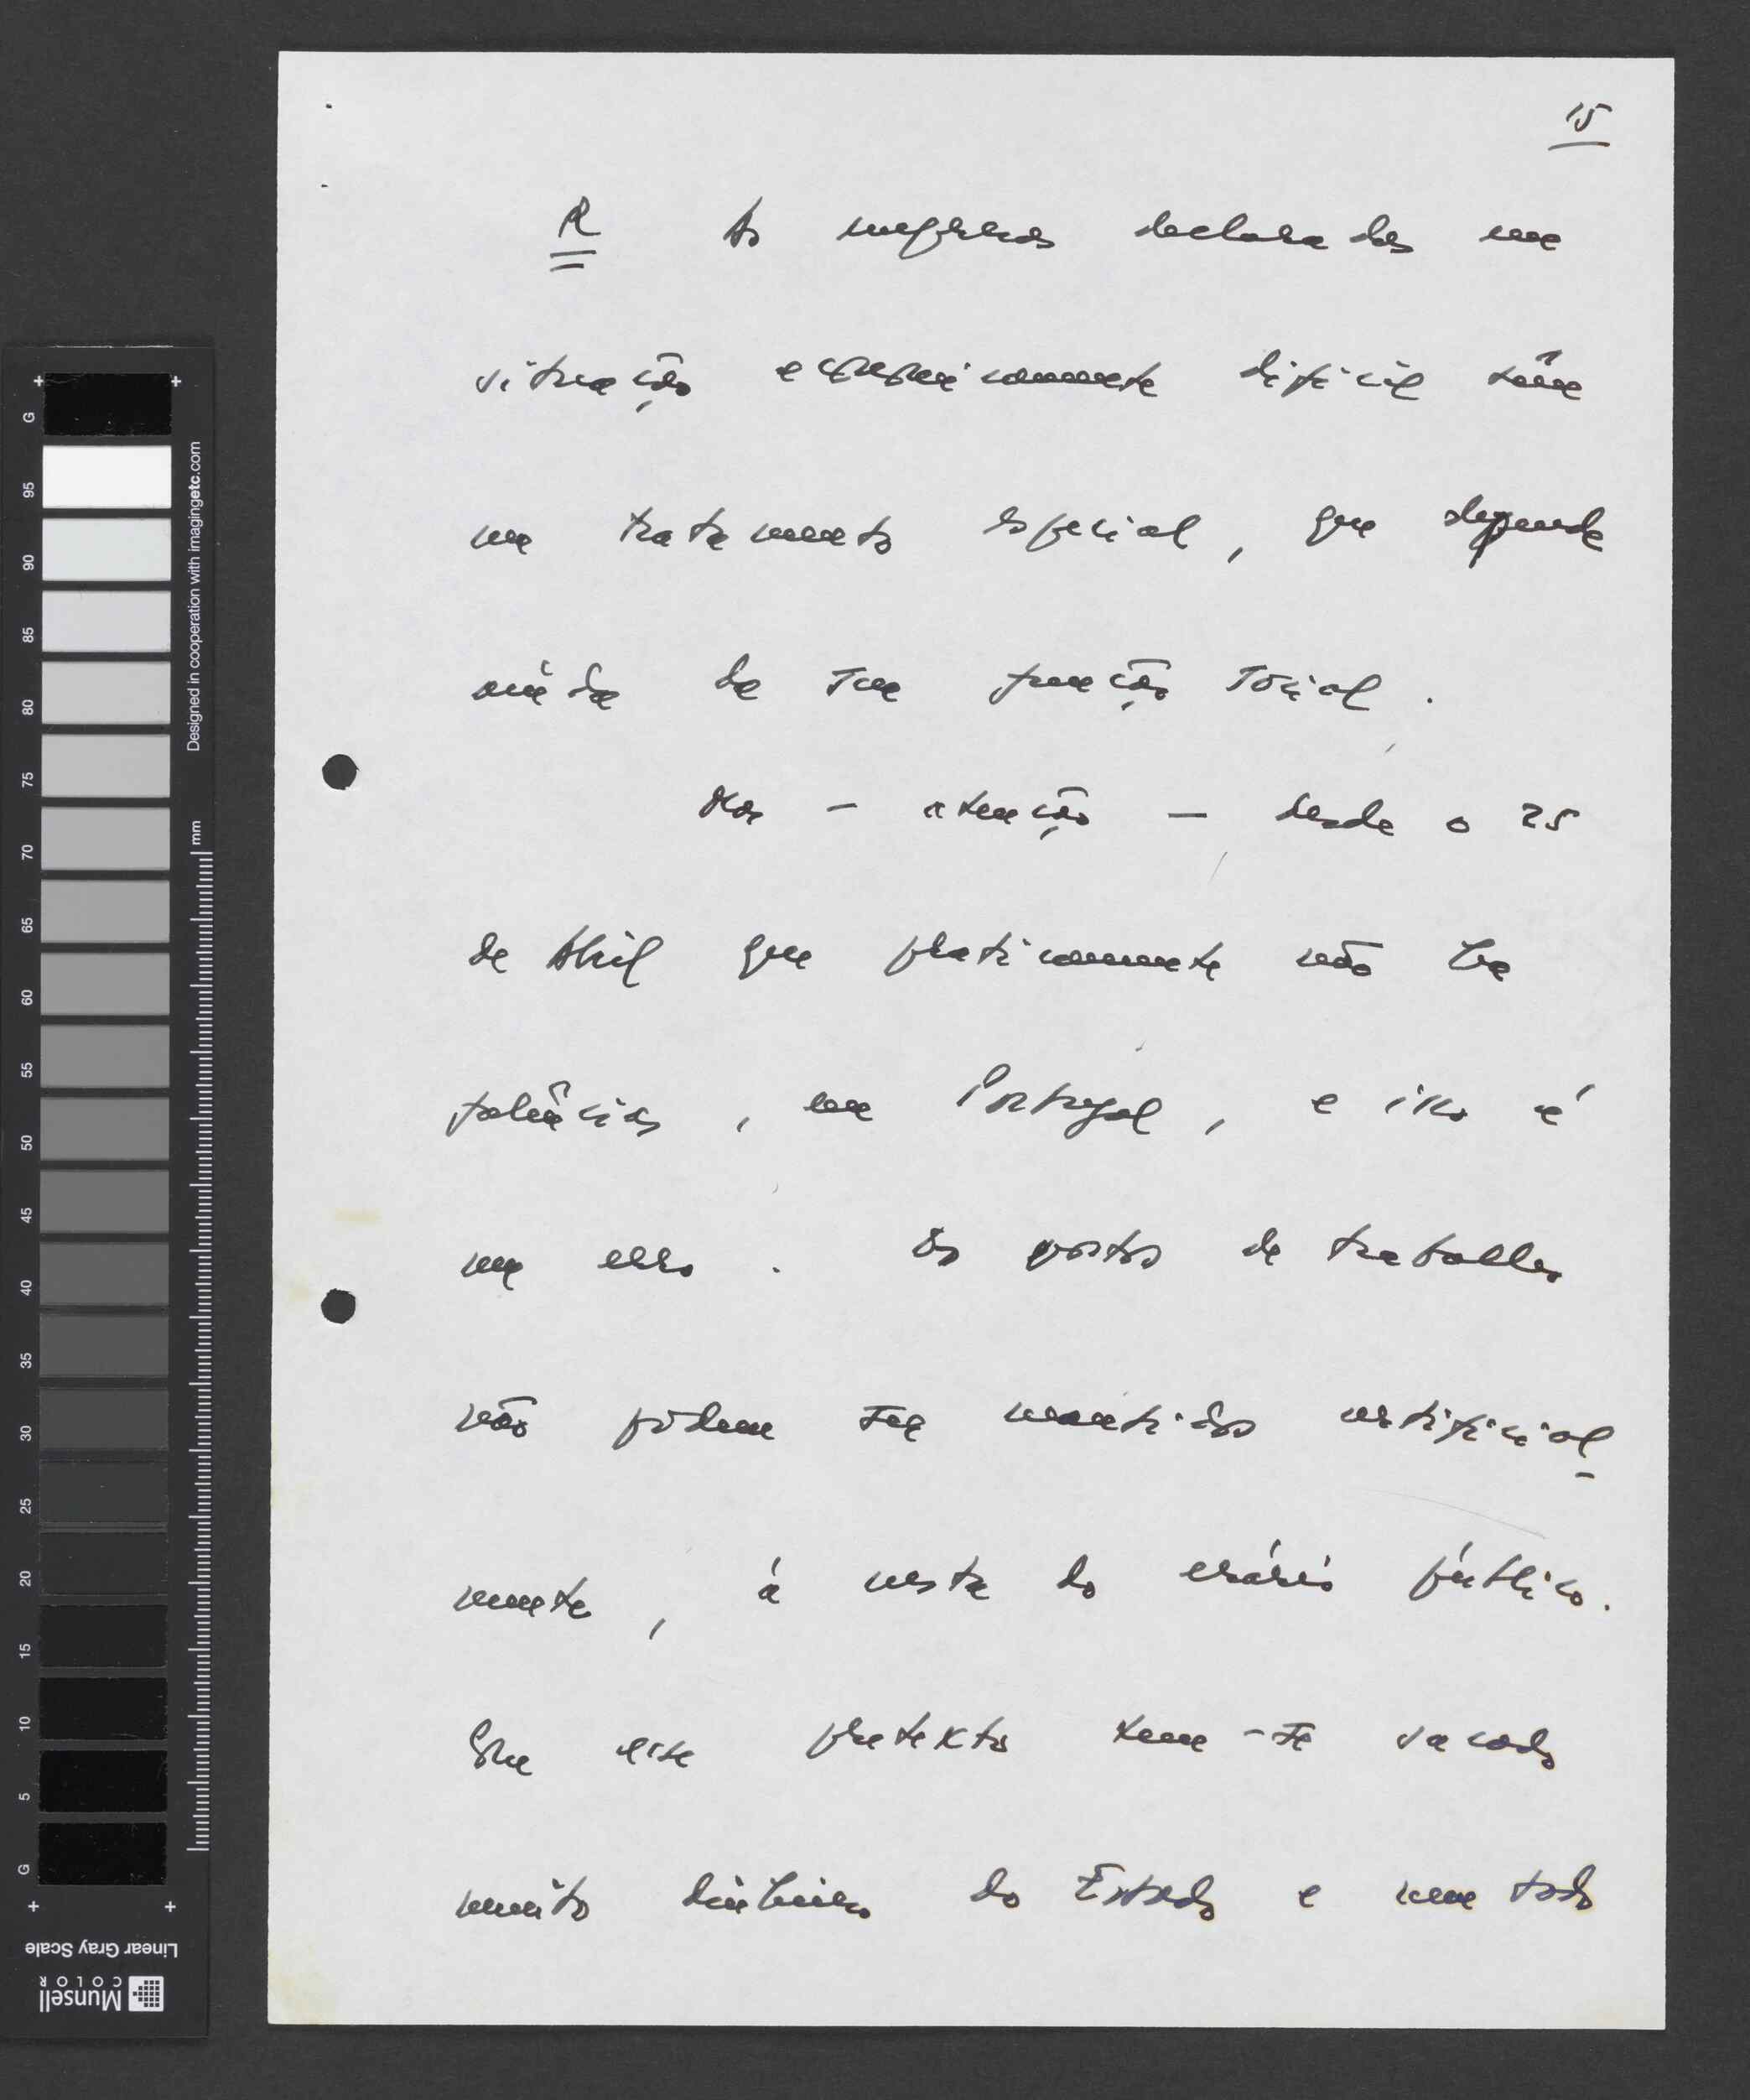 15
R As empresas declaradas em
situação economicamente difícil têm
um tratamento especial, que depende
ainda da sua função social.
Mas - atenção - desde o 25
de Abril que praticamente não há
falências, em Portugal, e isso é
um erro. Os postos de trabalho
não podem ser mantidos artificial-
mente, à custa do erário público.
Sob esse pretexto tem-se sacado
muito dinheiro do Estado e nem todo
G
95
90
85
80
75
70
65
60
55
50
45
40
35
30
25
20
15
10
5
G
Designed in cooperation with imagingetc.com
mm
Linear Gray Scale
Munsell
COLOR